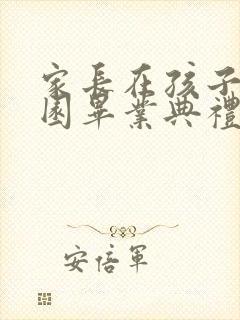 家長在孩子
園畢業典禮
安倍軍